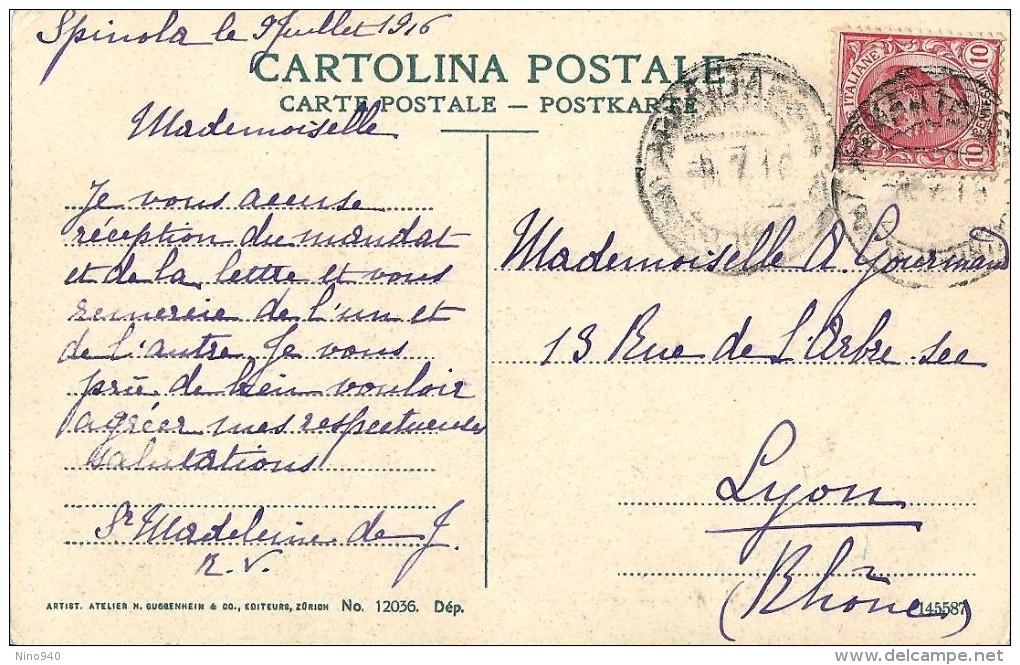 Spinola le 9 Juillet 1916
CARTOLINA POSTALE
CARTE POSTALE — POSTKARTE
Mademoiselle
Je vous accuse
réception du mandat
et de la lettre et vous
remercie de l'un et
de l'autre. Je vous
prie de bien vouloir
agréer mes respectueuses
salutations
Sr Madeleine de J.
R. V.
10
10
Mademoiselle A Gourmand
13 Rue de L'Arbre sec
Lyon
(Rhône)
ARTIST. ATELIER H. GUGGENHEIM & CO., EDITEURS, ZÜRICH No. 12036. Dép.
145587
Nino940
http://www.delcampe.net